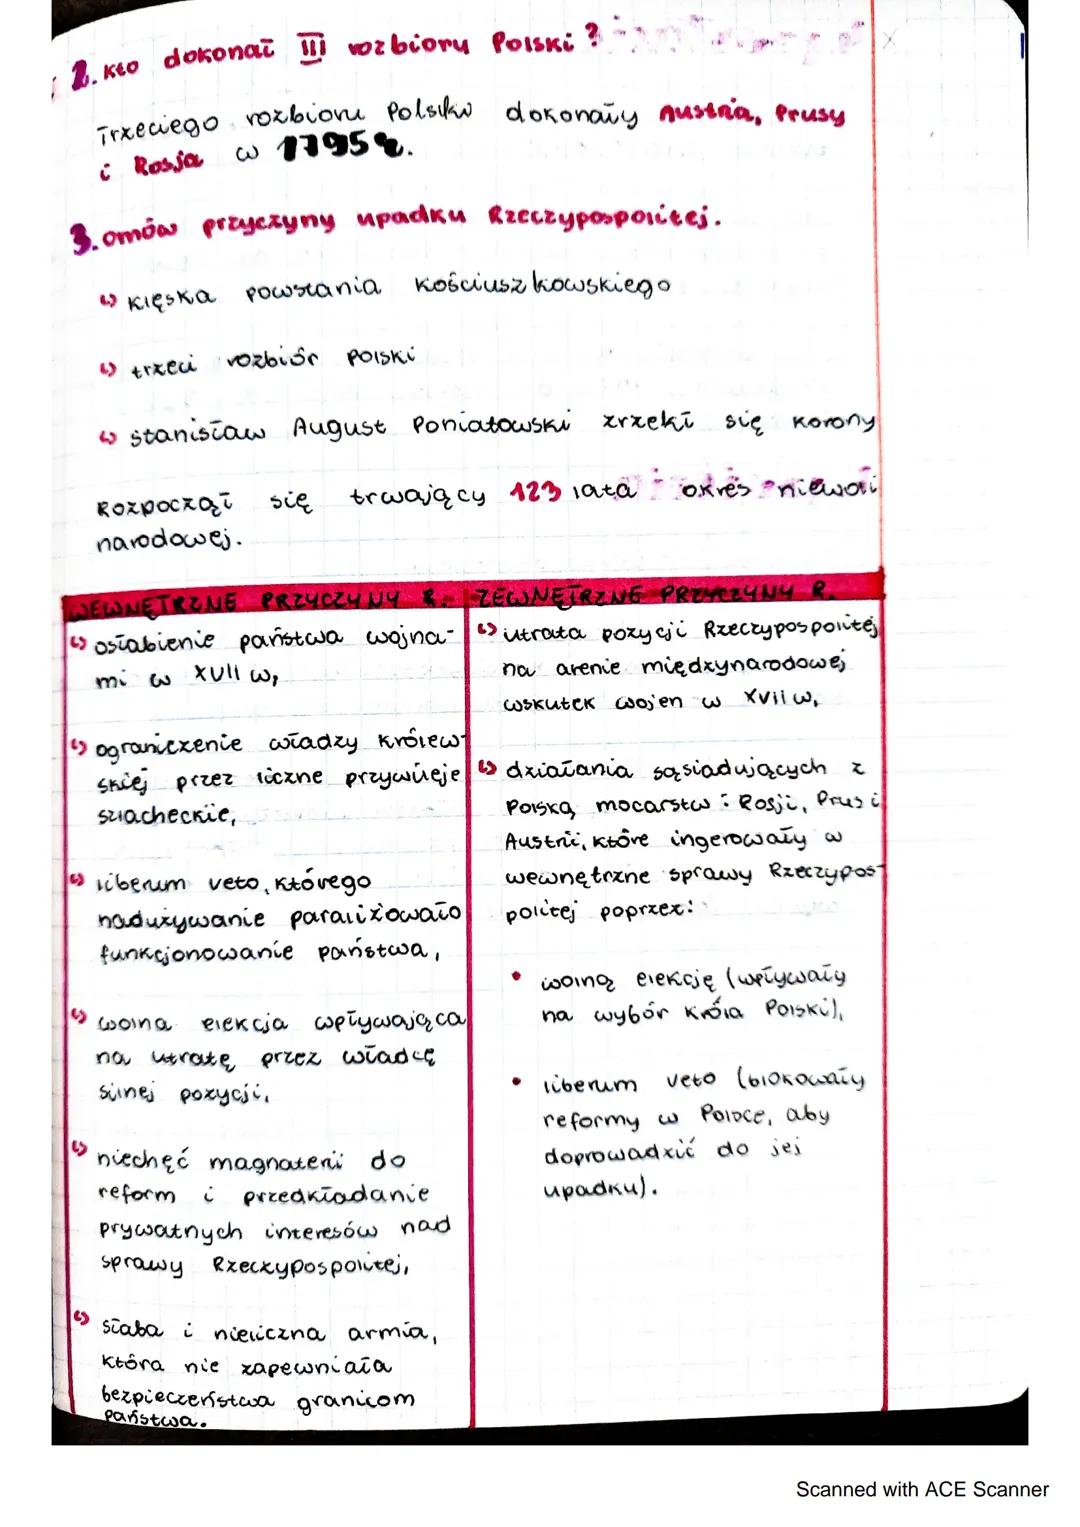 2. kto dokonał III rozbioru Polski?
Trzeciego rozbioru Polski w dokonały Austria, Prusy
i Rosja w 1795 r.
3. omów przyczyny upadku Rzeczypospolitej.
↳ klęska powstania kościuszkowskiego
↳ trzeci rozbiór polski
↳ stanisław August Poniatowski zrzekł się korony
Rozpoczął się trwający 123 lata okres niewoli
narodowej.
WEWNĘTRZNE PRZYCZYNY R.
↳ osłabienie państwa wojna-
mi w XVII w,
↳ ograniczenie władzy królew-
skiej przez liczne przywileje
szlacheckie,
↳ liberum veto, którego
nadużywanie paraliżowało
funkcjonowanie państwa,
↳ wolna elekcja wpływająca
na utratę przez władcę
silnej pozycji,
↳ niechęć magnaterii do
reform i przedkładanie
prywatnych interesów nad
sprawy Rzeczypospolitej,
↳ słaba i nieliczna armia,
która nie zapewniała
bezpieczeństwa granicom
państwa.
ZEWNĘTRZNE PRZYCZYNY R.
↳ utrata pozycji Rzeczypospolitej
na arenie międzynarodowej
wskutek wojen w XVII w,
↳ działania sąsiadujących z
Polską mocarstw: Rosji, Prus i
Austrii, które ingerowały w
wewnętrzne sprawy Rzeczypos-
politej poprzez:
• wolną elekcję (wpływały
na wybór króla Polski),
• liberum veto (blokowały
reformy w Polsce, aby
doprowadzić do jej
upadku).
Scanned with ACE Scanner